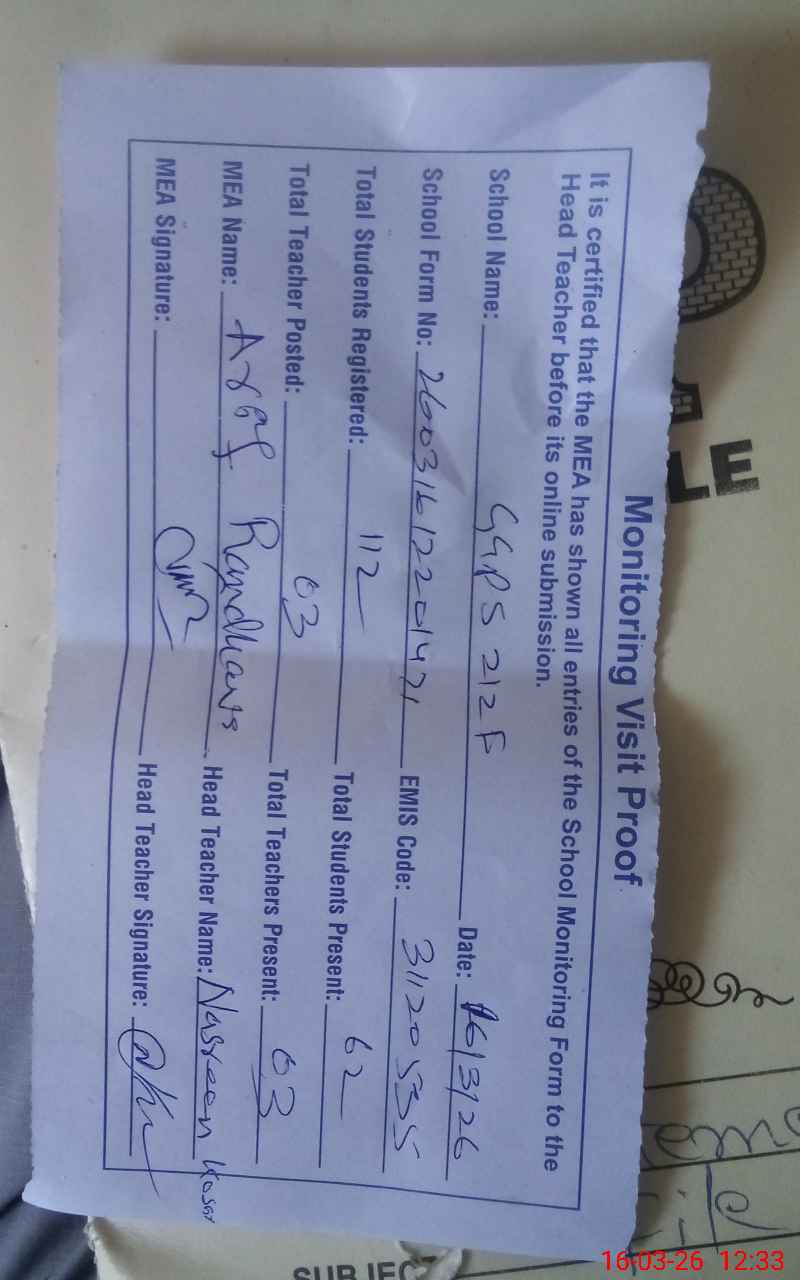 Monitoring Visit Proof
It is certified that the MEA has shown all entries of the School Monitoring Form to the
Head Teacher before its online submission.
School Name: GGPS 212F Date: 16/3/26
School Form No: 2600316122201471 EMIS Code: 31120535
Total Students Registered: 112 Total Students Present: 62
Total Teacher Posted: 03 Total Teachers Present: 03
MEA Name: Randhawa Head Teacher Name: Nasreen Kosar
MEA Signature: Head Teacher Signature:
LE
SUBJECT
16-03-26 12:33